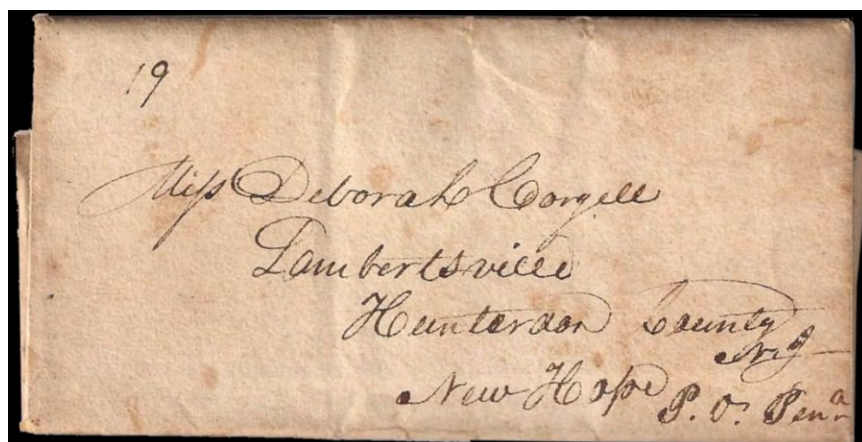 19
Miss Deborah Coryell
Lambertsville
Hunterdon County
N. J
New Hope P. O. Penᵃ